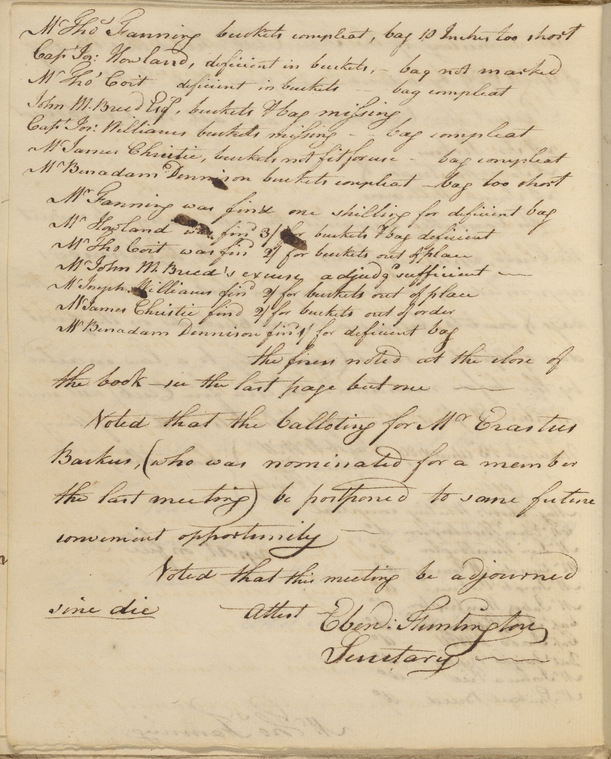 Mr Tho.s Fanning buckets compleat, bag 10 Inches too short
Capt Jos: Howland, deficient in buckets, - bag not marked
Mr Tho.s Coit deficient in buckets bag compleat
John M. Breed Esqr, buckets & bag missing
Capt Jos: Williams buckets missing - bag compleat
Mr James Christie, buckets not fit for use - bag compleat
Mr Benadam Dennison buckets compleat - bag too short
Mr Fanning was fin'd one shilling for deficient bag
Mr Howland was fin'd 3/ for buckets & bag deficient
Mr Tho Coit was fin'd 2/ for buckets out of place
Mr John M Breed's excuse adjudgd sufficient —
Mr Joseph Williams fin'd 2/ for buckets out of place
Mr James Christie fin'd 2/ for buckets out of order
Mr Benadam Dennison fin'd 1/ for deficient bag
the fines noted at the close of
the book - see the last page but one —
Noted that the balloting for Mr Erastus
Backus, (who was nominated for a member
the last meeting) be postponed to some future
convenient opportunity —
Noted that this meeting be adjourned
sine die Attest Eben.r Huntington,
Secretary —